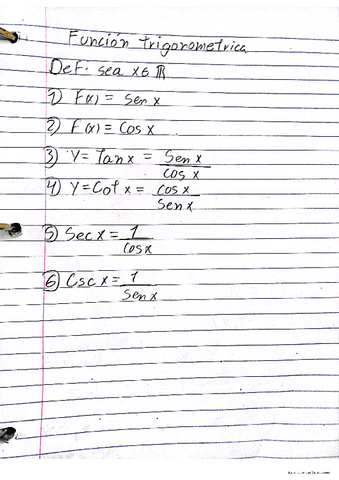 Función trigonometrica
Def. sea x ∈ ℝ
1) F(x) = Sen x
2) F(x) = Cos x
3) Y = Tan x = Sen x / Cos x
4) Y = Cot x = Cos x / Sen x
5) Sec x = 1 / Cos x
6) Csc x = 1 / Sen x